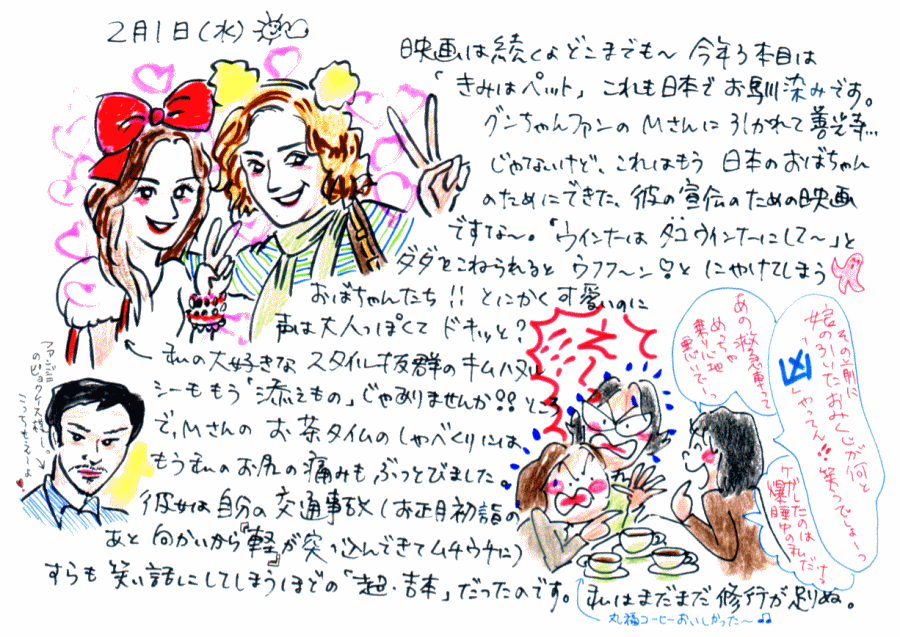 2月1日(水)
映画は続くよどこまでも〜 今年3本目は
「きみはペット」 これも日本でお馴染みです。
グンちゃんファンのMさんに引かれて善光寺…
じゃないけど、これはもう 日本のおばちゃん
のためにできた、彼の宣伝のための映画
ですな〜。「ウインナーは タコウインナーにして〜」と
ダダをこねられると ウフフ〜ン♡と にやけてしまう
おばちゃんたち!! とにかく可愛いのに
声は大人っぽくて ドキッと?
← 私の大好きな スタイル抜群のキムハヌル
シーももう「添えもの」じゃありませんか!! ところ
で、Mさんの お茶タイムのしゃべくりには
もう私のお尻の痛みもぶっとびました。
彼女は自分の交通事故(お正月初詣の
あと 向かいから『軽』が突っ込んできてムチウチに)
すらも笑い話にしてしまうほどの「超・吉本」だったのです。
私はまだまだ修行が足りぬ。
丸福コーヒーおいしかった〜♫
ファンジニ
のピョクケス様
その前に
娘の引いたおみくじが何と
「凶」やってん!! 笑うでしょーっ
あの救急車って
めっちゃ
乗り心地
悪いでぇっ
ケガしたのは
爆睡中の私だける